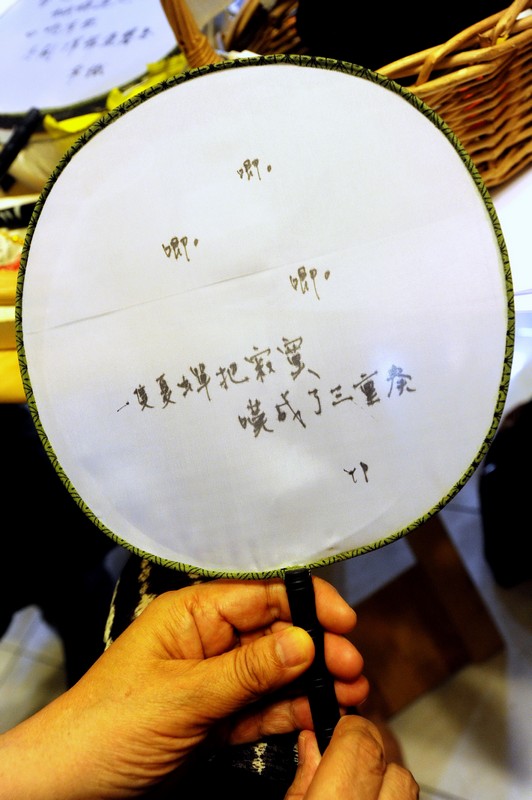 唧。
唧。
唧。
一隻夏蟬把寂寞
嘆成了三重奏